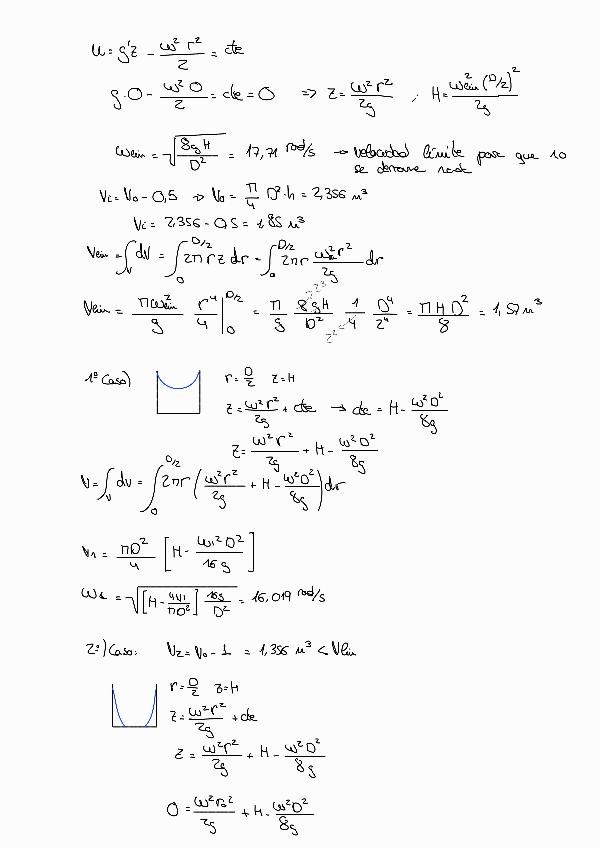 u = g'z - ω² r²/2 = cte
g·0 - ω² 0/2 = cte = 0 ⇒ z = ω² r²/2g ; H = ω²lim (D/2)²/2g
ωlim = √(8gH/D²) = 17,71 rad/s → velocidad límite para que no
se derrame
V₁ = V₀ - 0,5 → V₀ = π/4 D²·h = 2,356 m³
V₁ = 2,356 - 0,5 = 1,85 m³
Vlim = ∫_V dV = ∫₀^{D/2} 2πr z dr = ∫₀^{D/2} 2πr ω² r²/2g dr
Vlim = πω²lim/g r⁴/4 |₀^{D/2} = π/g 8gH/D² 1/4 D⁴/2⁴ = πHD²/8 = 1,57 m³
2³
2²
1º Caso) r = D/2 z = H
z = ω² r²/2g + cte → cte = H - ω² D²/8g
z = ω² r²/2g + H - ω² D²/8g
V = ∫_V dV = ∫₀^{D/2} 2πr (ω² r²/2g + H - ω² D²/8g) dr
V₁ = πD²/4 [H - ω₁² D²/16g]
ω₁ = √([H - 4V₁/πD²] 16g/D²) = 16,019 rad/s
2º) Caso: V₂ = V₀ - 1 = 1,356 m³ < Vlim
r = D/2 z = H
z = ω² r²/2g + cte
z = ω² r²/2g + H - ω² D²/8g
0 = ω² r₀²/2g + H - ω² D²/8g